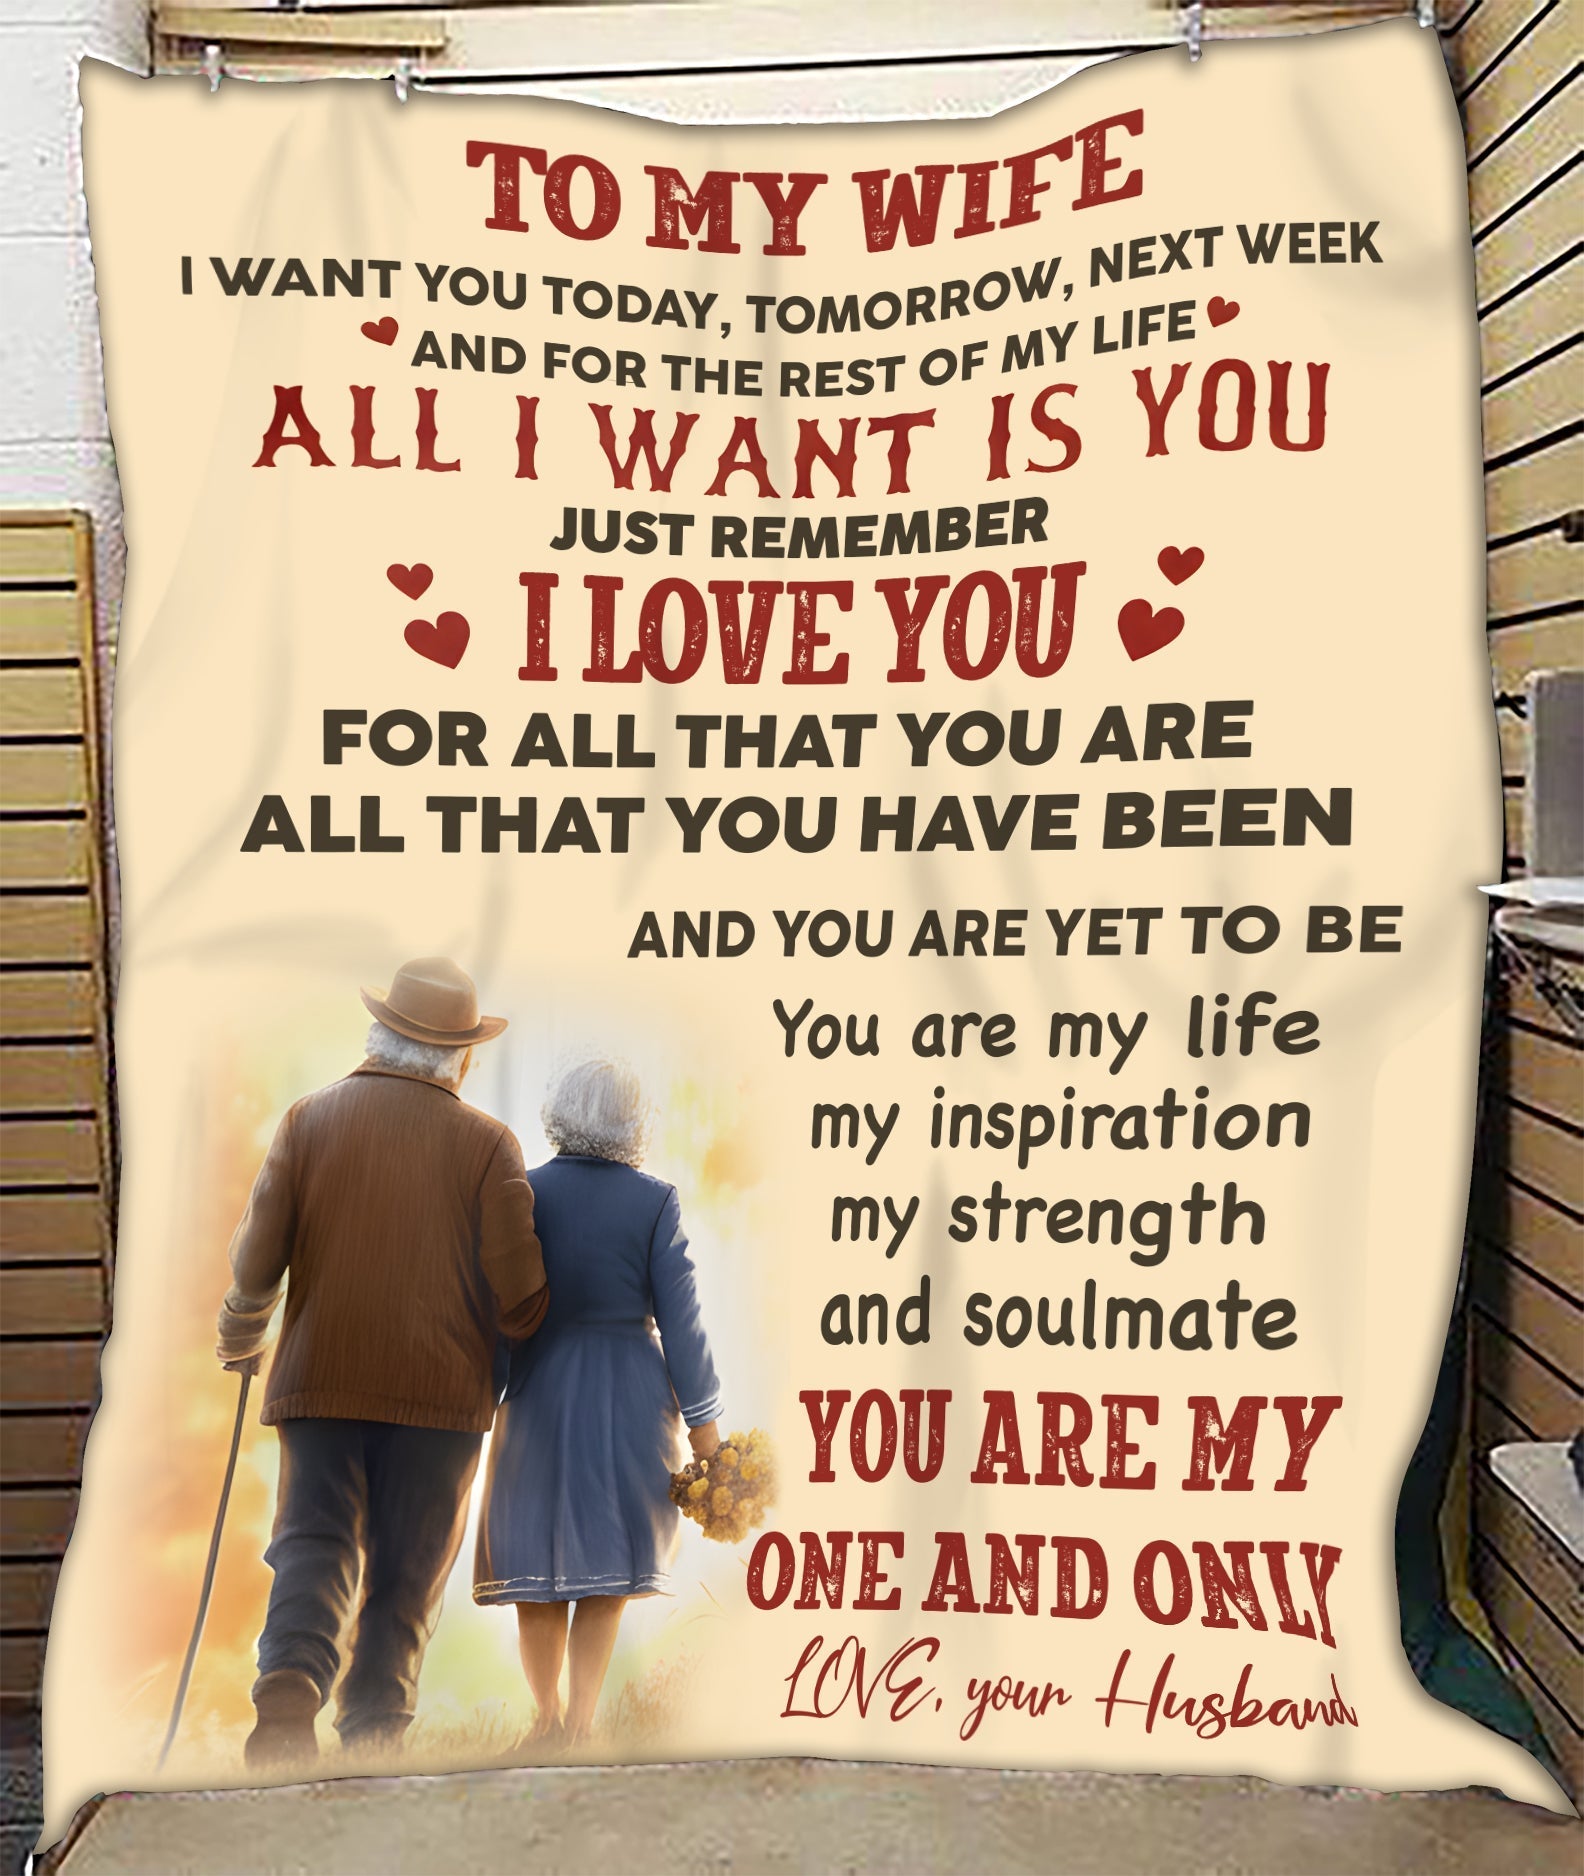 TO MY WIFE
I WANT YOU TODAY, TOMORROW, NEXT WEEK
AND FOR THE REST OF MY LIFE
ALL I WANT IS YOU
JUST REMEMBER
I LOVE YOU
FOR ALL THAT YOU ARE
ALL THAT YOU HAVE BEEN
AND YOU ARE YET TO BE
You are my life
my inspiration
my strength
and soulmate
YOU ARE MY
ONE AND ONLY
LOVE, your Husband